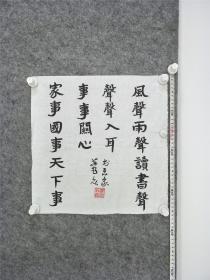 風聲雨聲讀書聲
聲聲入耳
家事國事天下事
事事關心